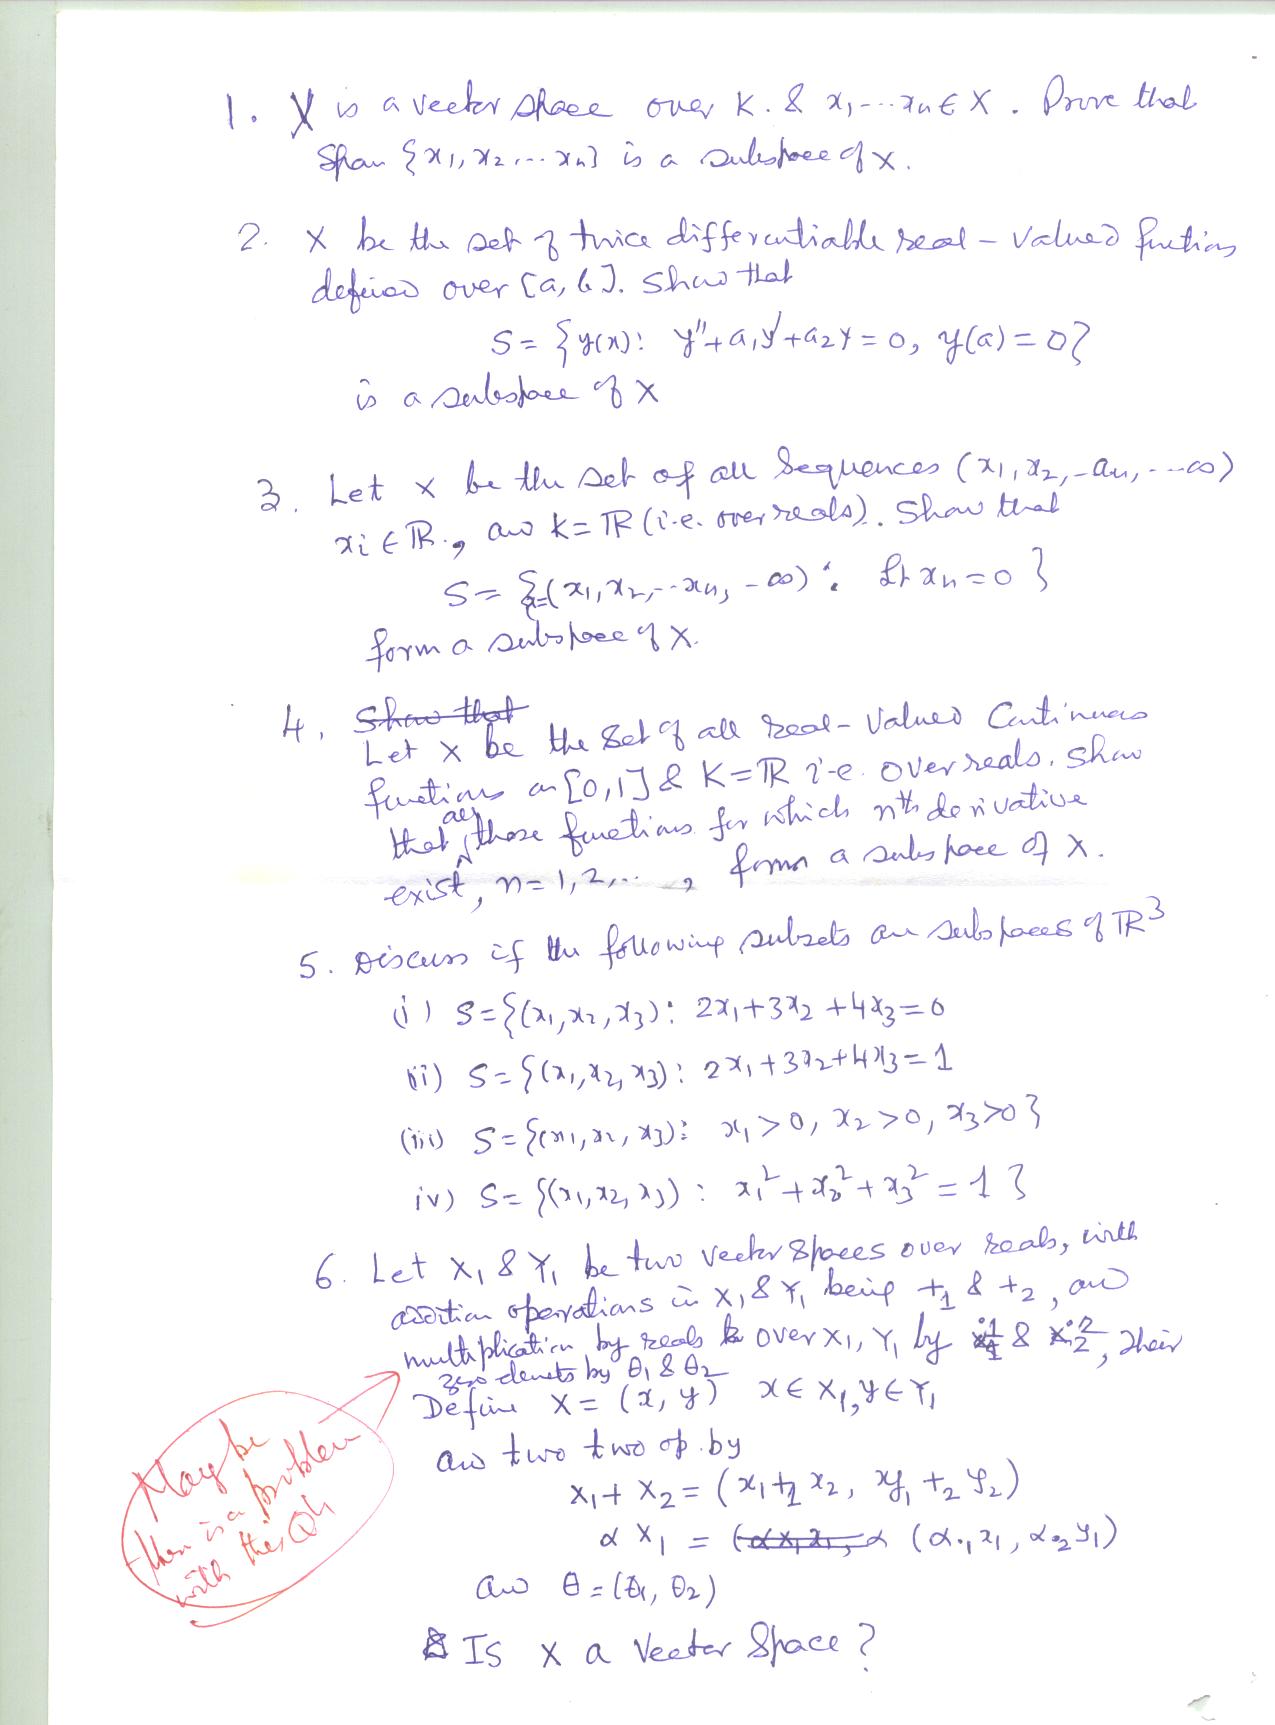 1. X is a vector space over K. & x1, --- xn ∈ X. Prove that
Span {x1, x2, ... xn} is a subspace of X.
2. X be the set of twice differentiable real-valued functions
defined over [a, b]. Show that
S = {y(x): y'' + a1y' + a2y = 0, y(a) = 0}
is a subspace of X
3. Let X be the set of all sequences (x1, x2, -- an, --- ∞)
xi ∈ ℝ., and K = ℝ (i.e. over reals). Show that
S = {(x1, x2, -- xn, - ∞) : Lt xn = 0 }
form a subspace of X.
4. Show that
Let X be the set of all real-valued Continuous
functions on [0,1] & K = ℝ i.e. over reals. Show
that all those functions for which nth derivative
exist, n = 1, 2, ... , forms a subspace of X.
5. Discuss if the following subsets are subspaces of ℝ3
(i) S = {(x1, x2, x3): 2x1 + 3x2 + 4x3 = 0
(ii) S = {(x1, x2, x3): 2x1 + 3x2 + 4x3 = 1
(iii) S = {(x1, x2, x3): x1 > 0, x2 > 0, x3 > 0}
iv) S = {(x1, x2, x3) : x1^2 + x2^2 + x3^2 = 1 }
6. Let X1 & Y1 be two vector spaces over reals, with
addition operations in X1 & Y1 being +1 & +2, and
multiplication by reals over X1, Y1 by ·1 & ·2, their
zero elements by θ1 & θ2
Define X = (x, y) x ∈ X1, y ∈ Y1
and two two op. by
X1 + X2 = (x1 +1 x2, y1 +2 y2)
α X1 = (α ·1 x1, α ·2 y1)
and θ = (θ1, θ2)
Is X a Vector Space?
May be
then is a problem
with this Qn